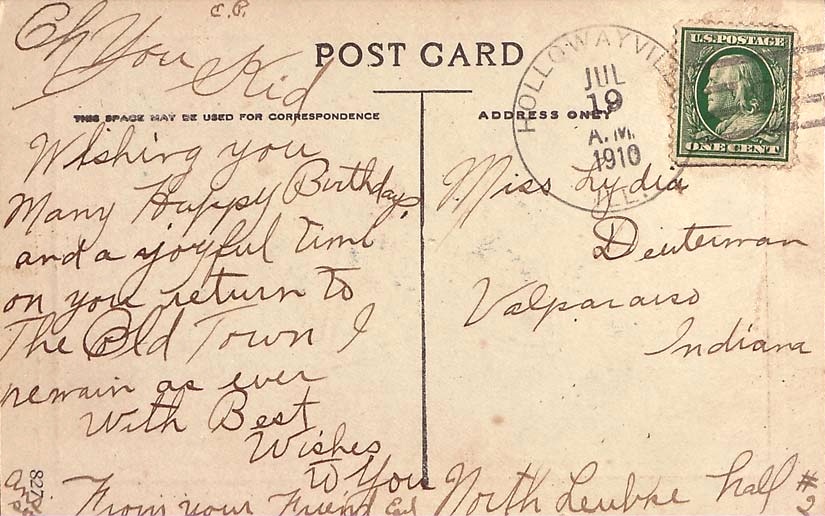 C.P.
Oh You
Kid
POST CARD
THIS SPACE MAY BE USED FOR CORRESPONDENCE
ADDRESS ONLY
HOLLOWAYVILLE
JUL
19
A.M.
1910
ILL.
U.S. POSTAGE
ONE CENT
Wishing you
Many Happy Birthdays,
and a joyful time
on you return to
The Old Town I
remain as ever
With Best
Wishes
to You
From your Friend
Miss Lydia
Deuterman
Valparaiso
Indiana
North Leubke hall #
2